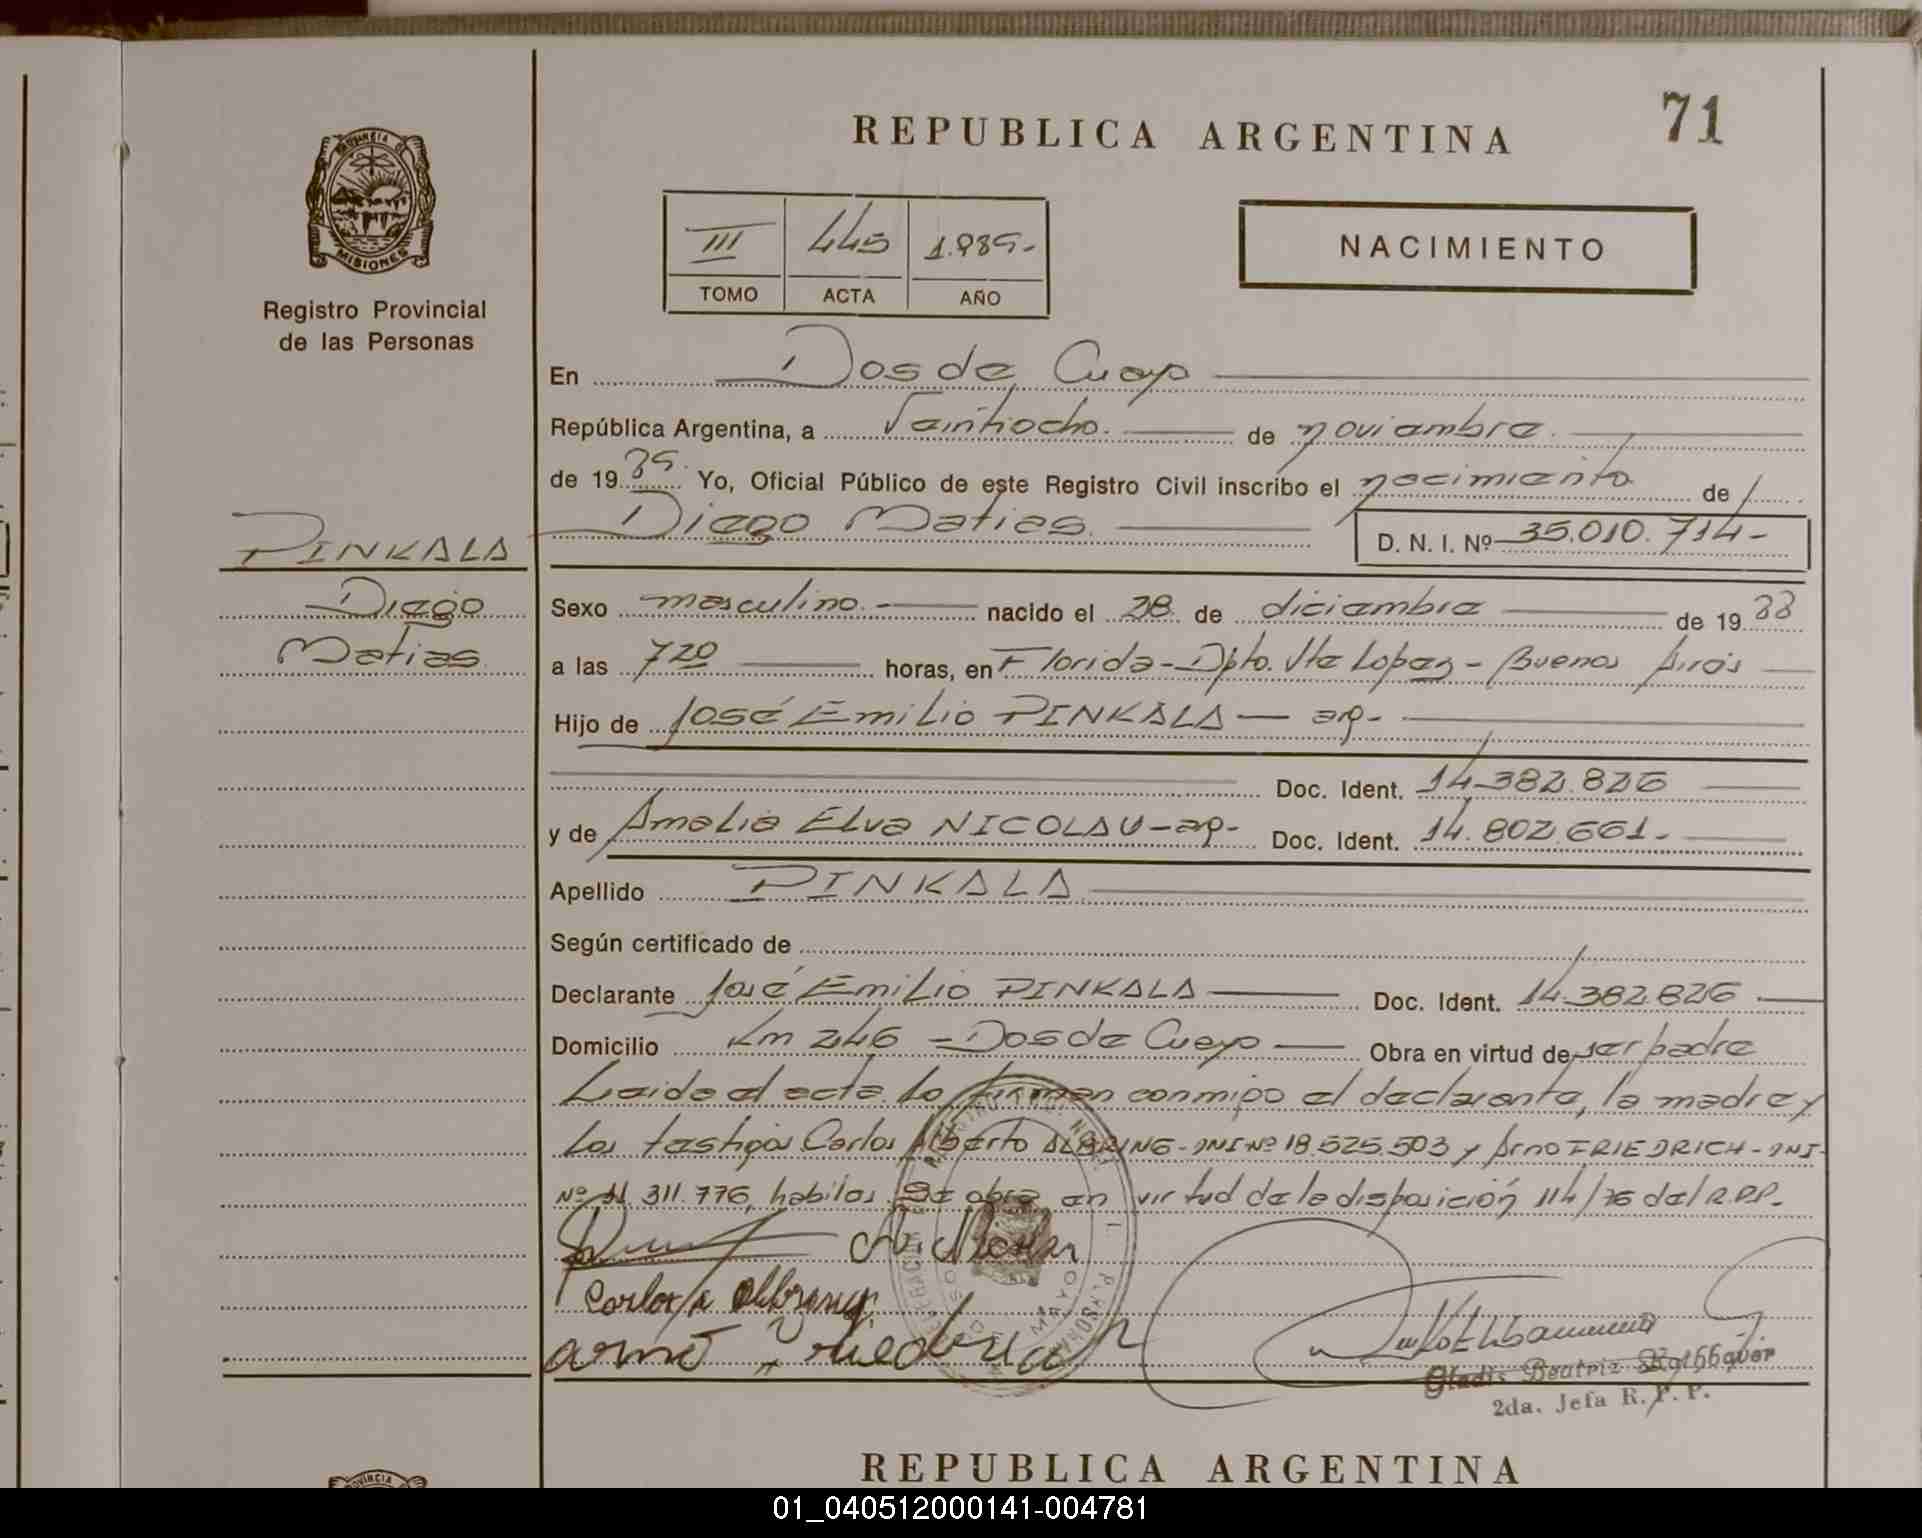 71
REPUBLICA ARGENTINA
PROVINCIA DE
MISIONES
Registro Provincial
de las Personas
III 445 1.989-
TOMO ACTA AÑO
NACIMIENTO
En Dos de Mayo
República Argentina, a Veintiocho. de noviembre.
de 1989. Yo, Oficial Público de este Registro Civil inscribo el nacimiento de
Diego Matias. D. N. I. Nº 35.010.714-
PINKALA
Diego
Matias
Sexo masculino. nacido el 28. de diciembre de 1988
a las 720 horas, en Florida-Dpto. Vte Lopez-Buenos Aires
Hijo de José Emilio PINKALA - arg-
Doc. Ident. 14.382.826
y de Amalia Elva NICOLAU-arg- Doc. Ident. 14.802.661.-
Apellido PINKALA
Según certificado de
Declarante José Emilio PINKALA Doc. Ident. 14.382.826
Domicilio Km 246 - Dos de Mayo Obra en virtud de ser padre
Leida el acta. La firman conmigo el declarante, la madre y
los testigos Carlos Alberto ALBRING-DNI Nº 18.525.503 y Arno FRIEDRICH-DNI-
Nº 11.311.776, habiles. Se obra en virtud de la disposición 114/76 del R.P.P.-
Carlos A Albring
Arno Friedrich
Gladis Beatriz
2da. Jefa R. P. P.
REPUBLICA ARGENTINA
PROVINCIA
01_040512000141-004781